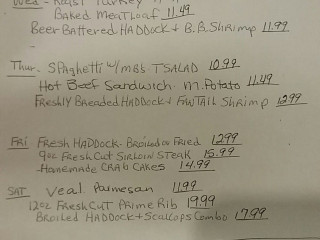 Wed - Roast Turkey
Baked Meatloaf 11.49
Beer Battered Haddock + B.B. Shrimp 11.99
Thur. Spaghetti w/ MBs. T SALAD 10.99
Hot Beef Sandwich m. Potato 11.49
Freshly Breaded Haddock + Fantail Shrimp 12.99
FRI Fresh Haddock - Broiled or Fried 12.99
9oz Fresh Cut Sirloin Steak 15.99
Homemade Crab Cakes 14.99
SAT Veal Parmesan 11.99
12oz Fresh Cut Prime Rib 19.99
Broiled Haddock + Scallops Combo 17.99